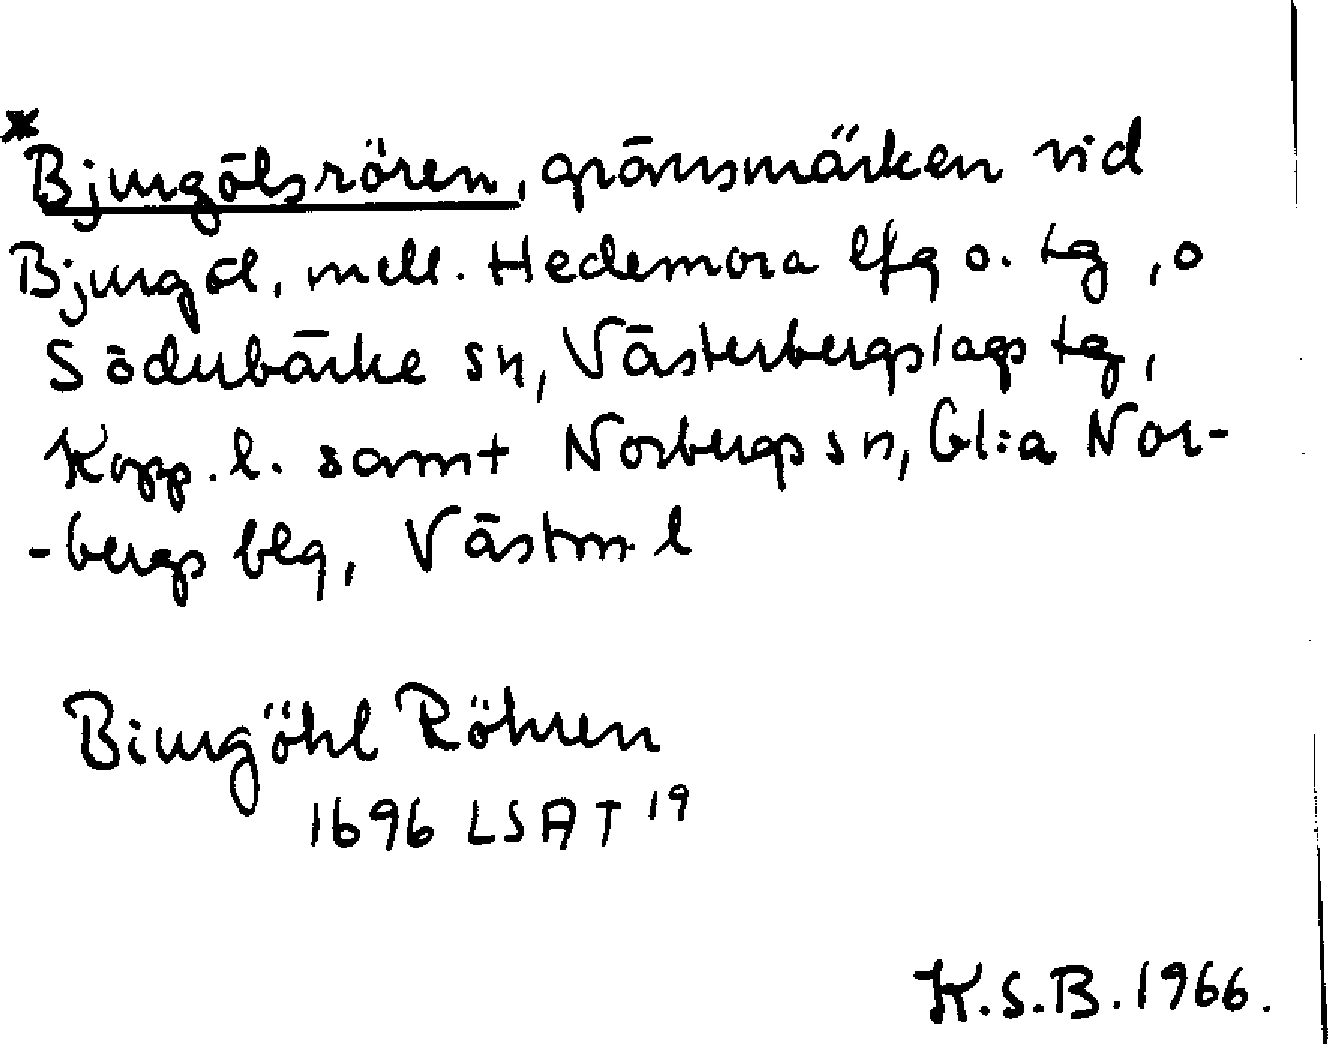 *Bjurgölsrören, gränsmärken vid
Bjurgöl, mell. Hedemora lfg o. tg, o
Söderbärke sn, Västerbergslags tg,
Kopp. l. samt Norbergs sn, Gl:a Nor-
-bergs blg, Västm l
Biurgöhl Röhren
1696 LSA T 19
K.S.B. 1966.